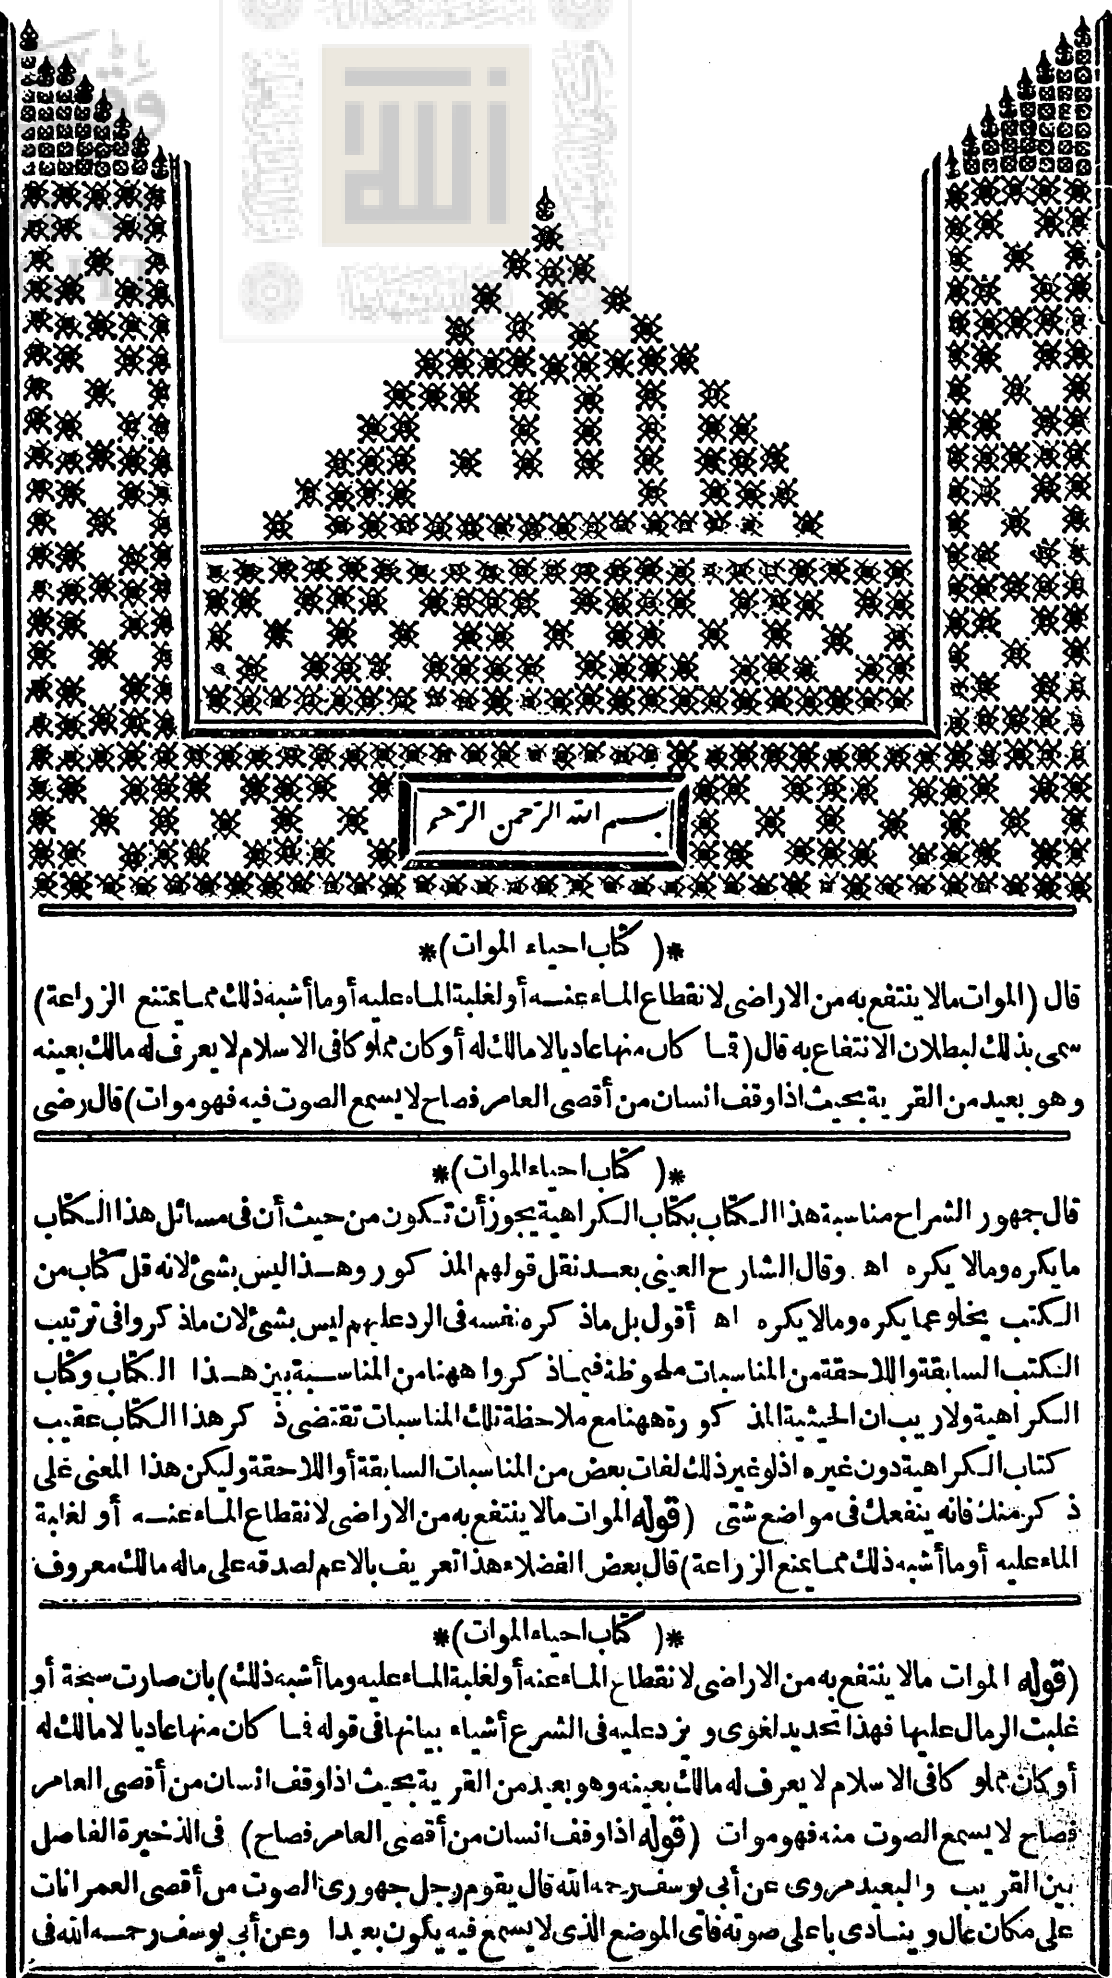 بسم الله الرحمن الرحيم
*( كتاب احياء الموات )*
قال (الموات مالا ينتفع به من الاراضى لانقطاع الماء عنه أو لغلبة الماء عليه أو ما أشبه ذلك مما يمنع الزراعة)
سمى بذلك لبطلان الانتفاع به قال (فما كان منها عاديا لا مالك له أو كان مملوكا فى الاسلام لا يعرف له مالك بعينه
وهو بعيد من القرية بحيث اذا وقف انسان من أقصى العامر فصاح لا يسمع الصوت فيه فهو موات) قال رضى
*( كتاب احياء الموات )*
قال جمهور الشراح مناسبة هذا الكتاب بكتاب الكراهية يجوز أن تكون من حيث أن فى مسائل هذا الكتاب
ما يكره وما لا يكره اه وقال الشارح العينى بعد نقل قولهم المذكور وهذا ليس بشئ لانه قل كتاب من
الكتب يخلو عما يكره وما لا يكره اه أقول بل ما ذكره نفسه فى الرد عليهم ليس بشئ لان ما ذكروا فى ترتيب
الكتب السابقة واللاحقة من المناسبات ملحوظة فيما ذكروا ههنا من المناسبة بين هذا الكتاب وكتاب
الكراهية ولا ريب ان الحيثية المذكورة ههنا مع ملاحظة تلك المناسبات تقتضى ذكر هذا الكتاب عقيب
كتاب الكراهية دون غيره اذ لو غير ذلك لفات بعض من المناسبات السابقة أو اللاحقة وليكن هذا المعنى على
ذكر منك فانه ينفعك فى مواضع شتى (قوله الموات مالا ينتفع به من الاراضى لانقطاع الماء عنه أو لغلبة
الماء عليه أو ما أشبه ذلك مما يمنع الزراعة) قال بعض الفضلاء هذا تعريف بالاعم لصدقه على ماله مالك معروف
*( كتاب احياء الموات )*
(قوله الموات مالا ينتفع به من الاراضى لانقطاع الماء عنه أو لغلبة الماء عليه وما أشبه ذلك) بان صارت سبخة أو
غلبت الرمال عليها فهذا تحديد لغوى ويزد عليه فى الشرع أشياء بيانها فى قوله فما كان منها عاديا لا مالك له
أو كان مملوكا فى الاسلام لا يعرف له مالك بعينه وهو بعيد من القرية بحيث اذا وقف انسان من أقصى العامر
فصاح لا يسمع الصوت منه فهو موات (قوله اذا وقف انسان من أقصى العامر فصاح) فى الذخيرة الفاصل
بين القريب والبعيد مروى عن أبى يوسف رحمه الله قال يقوم رجل جهورى الصوت من أقصى العمرانات
على مكان عال وينادى باعلى صوته فاى الموضع الذى لا يسمع فيه يكون بعيدا وعن أبى يوسف رحمه الله فى